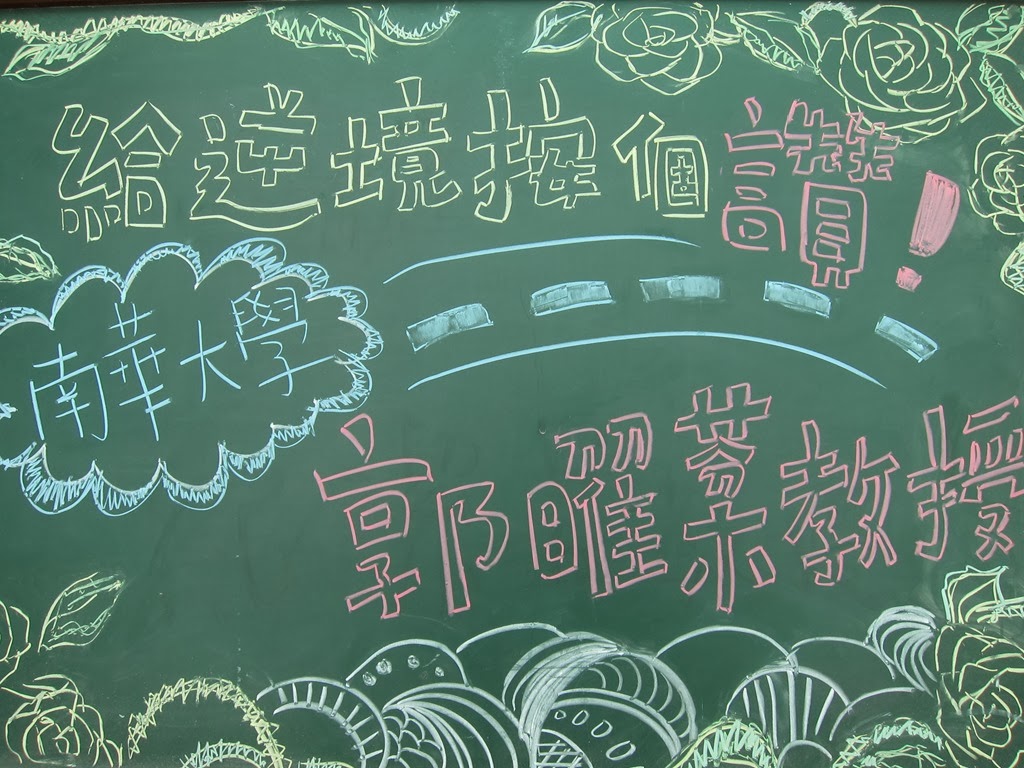 給逆境按個讚!
南華大學
郭曜棻教授